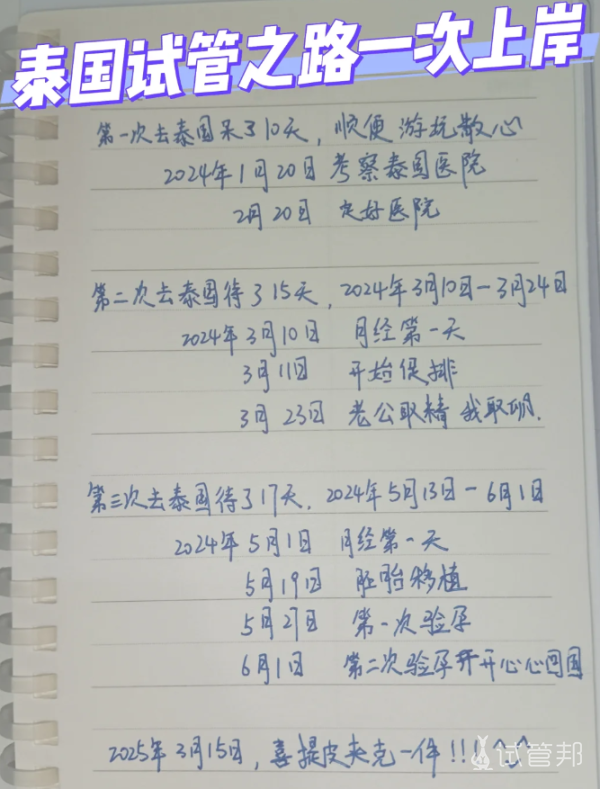 泰国试管之路一次上岸
第一次去泰国呆了10天，顺便游玩散心
2024年1月20日 考察泰国医院
2月20日 定好医院
第二次去泰国待了15天，2024年3月10日-3月24日
2024年3月10日 月经第一天
3月11日 开始促排
3月23日 老公取精 我取卵.
第三次去泰国待了17天，2024年5月13日-6月1日
2024年5月1日 月经第一天
5月19日 胚胎移植
5月27日 第一次验孕
6月1日 第二次验孕开开心心回国
2025年3月15日，喜提皮夹克一件!!!^^
试管邦